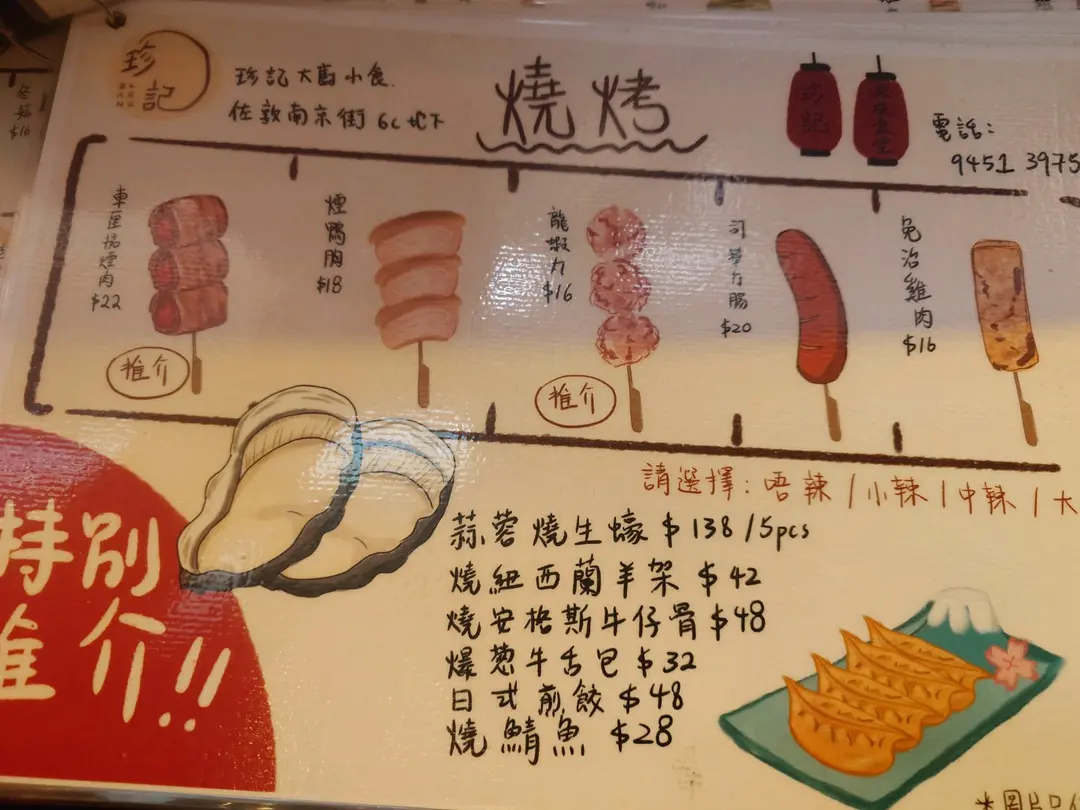 珍記
珍記大廚小食
佐敦南京街 6C 地下
燒烤
珍記
電話:
9451 3975
車厘茄煙肉
$22
推介
煙鴨胸
$18
龍蝦丸
$16
推介
$20
免治雞肉
$16
請選擇: 唔辣 / 小辣 / 中辣 / 大
特別
推介!!
蒜蓉燒生蠔 $138/5pcs
燒紐西蘭羊架 $42
燒安格斯牛仔骨 $48
爆葱牛舌包 $32
日式煎餃 $48
燒鯖魚 $28